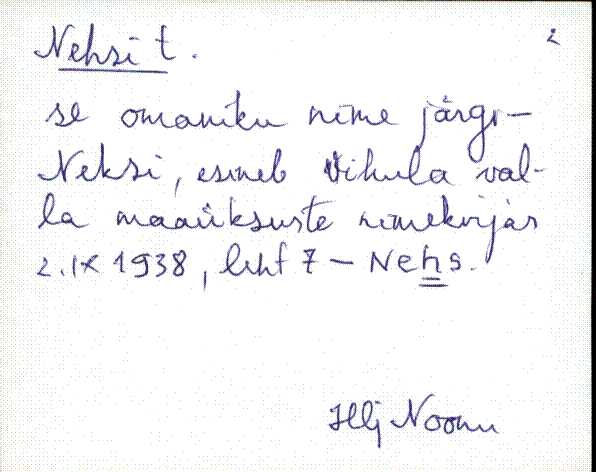 Nehsi t. 2
se omaniku nime järgi –
Neksi, esineb Vihula val-
la maaüksuste nimekirjas
2. IX 1938, leht 7 – Nehs.
Noonu